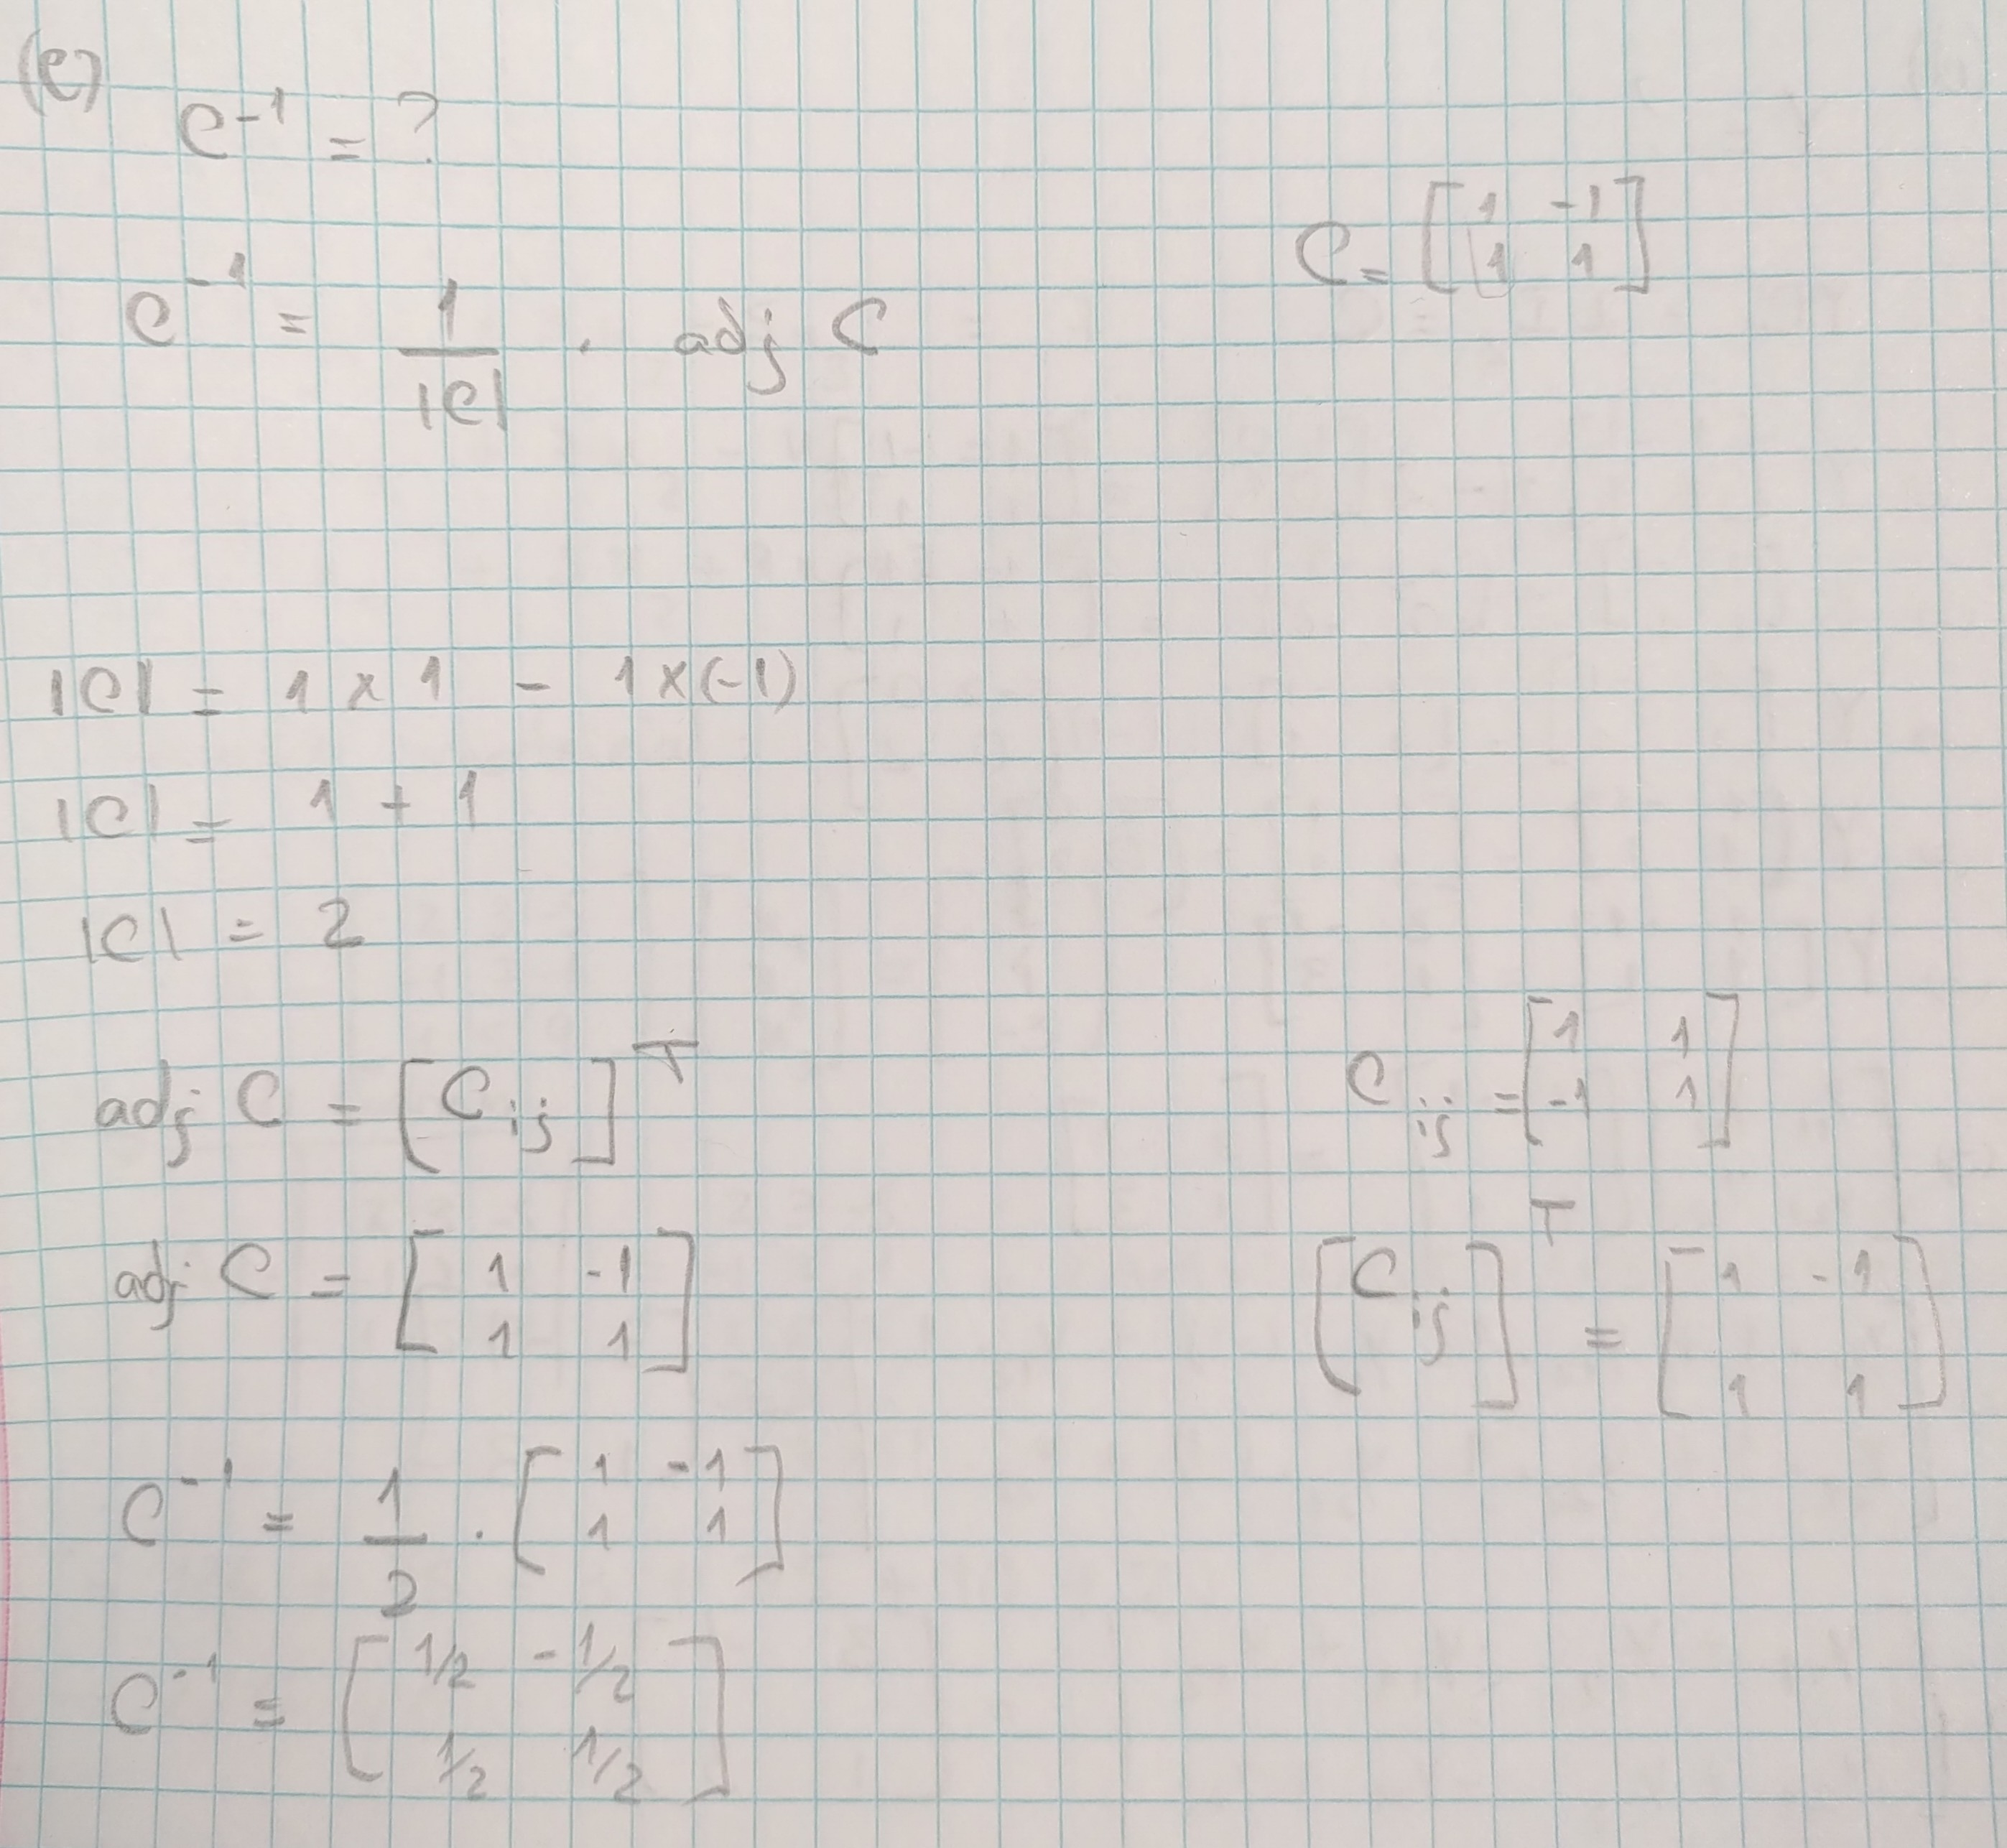 (c)
C⁻¹ = ?
C = [1 -1
1 1]
C⁻¹ = 1/|C| . adj C
|C| = 1 x 1 - 1 x (-1)
|C| = 1 + 1
|C| = 2
adj C = [C ij]ᵀ
C ij = [1 1
-1 1]
adj C = [1 -1
1 1]
[C ij]ᵀ = [1 -1
1 1]
C⁻¹ = 1/2 . [1 -1
1 1]
C⁻¹ = [1/2 -1/2
1/2 1/2]